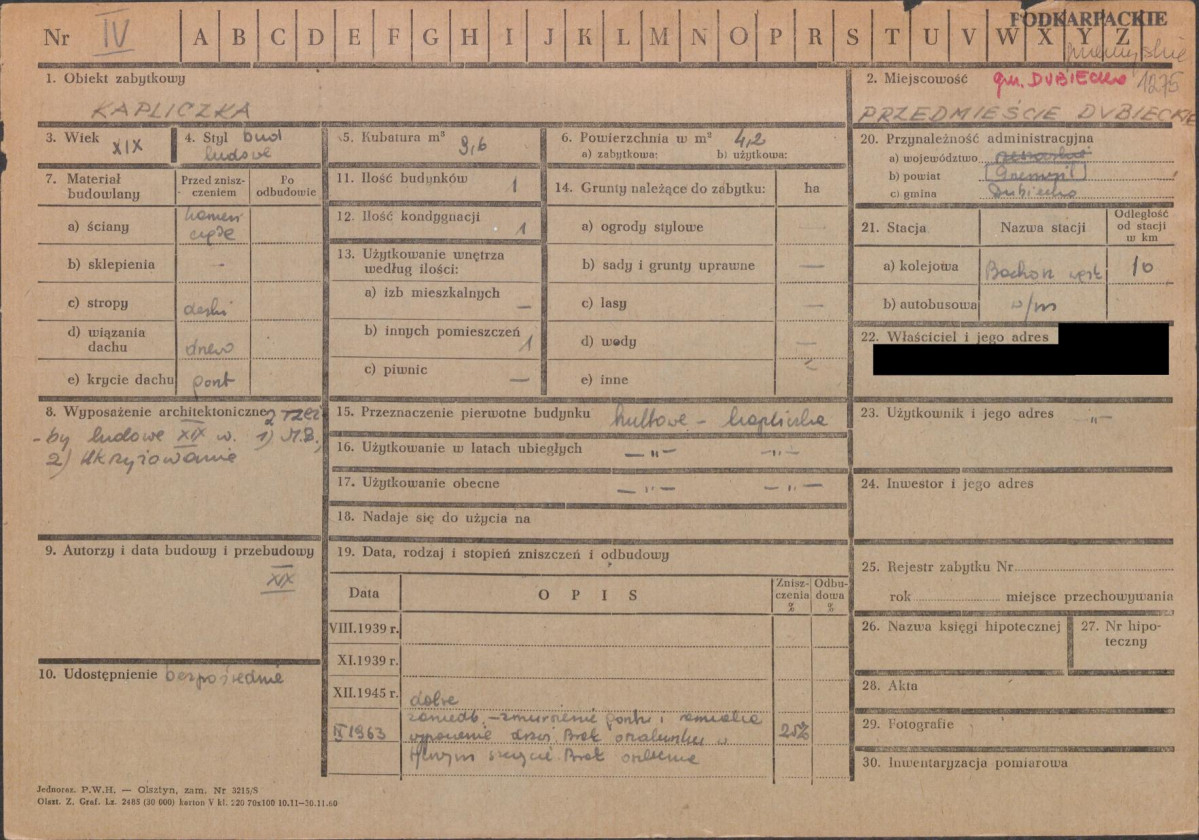 Nr IV A B C D E F G H I J K L M N O P R S T U V W X Y Z
PODKARPACKIE
przemyskie
1. Obiekt zabytkowy
KAPLICZKA
2. Miejscowość gm. DUBIECKO 1275
PRZEDMIEŚCIE DUBIECKIE
3. Wiek XIX
4. Styl bud
ludowe
5. Kubatura m³ 9,6
6. Powierzchnia w m² 4,2
a) zabytkowa: b) użytkowa:
7. Materiał
budowlany
Przed znisz-
czeniem
Po
odbudowie
a) ściany kamień
cegła
b) sklepienia —
c) stropy deski
d) wiązania
dachu drewo
e) krycie dachu gont
8. Wyposażenie architektoniczne 2 rzeź
-by ludowe XIX w. 1) M.B.,
2) Ukrzyżowanie
9. Autorzy i data budowy i przebudowy
XIX
10. Udostępnienie bezpośrednie
11. Ilość budynków 1
12. Ilość kondygnacji 1
13. Użytkowanie wnętrza
według ilości:
a) izb mieszkalnych —
b) innych pomieszczeń 1
c) piwnic —
14. Grunty należące do zabytku: ha
a) ogrody stylowe —
b) sady i grunty uprawne —
c) lasy —
d) wody —
e) inne
15. Przeznaczenie pierwotne budynku kultowe - kapliczka
16. Użytkowanie w latach ubiegłych — „ — — „ —
17. Użytkowanie obecne — „ — — „ —
18. Nadaje się do użycia na
19. Data, rodzaj i stopień zniszczeń i odbudowy
Data OPIS Znisz-
czenia
% Odbu-
dowa
%
VIII.1939 r.
XI.1939 r.
XII.1945 r. dobre
IX 1963 zaniedb. - zmurszenie gontu i
drzwi. Brak oszalunku w 25%
szczycie. Brak
20. Przynależność administracyjna
a) województwo rzeszowskie
b) powiat Przemyśl
c) gmina Dubiecko
21. Stacja Nazwa stacji Odległość
od stacji
w km
a) kolejowa Bachórz wąsk 10
b) autobusowa w/m
22. Właściciel i jego adres
23. Użytkownik i jego adres - „ -
24. Inwestor i jego adres
25. Rejestr zabytku Nr
rok miejsce przechowywania
26. Nazwa księgi hipotecznej
27. Nr hipo-
teczny
28. Akta
29. Fotografie
30. Inwentaryzacja pomiarowa
Jednoraz. P.W.H. — Olsztyn, zam. Nr 3215/S
Olszt. Z. Graf. Lz. 2485 (30 000) karton V kl. 220 70x100 10.11—30.11.60